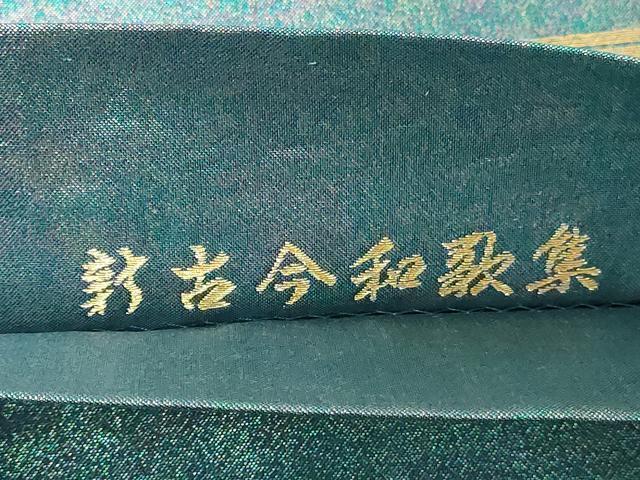 新古今和歌集